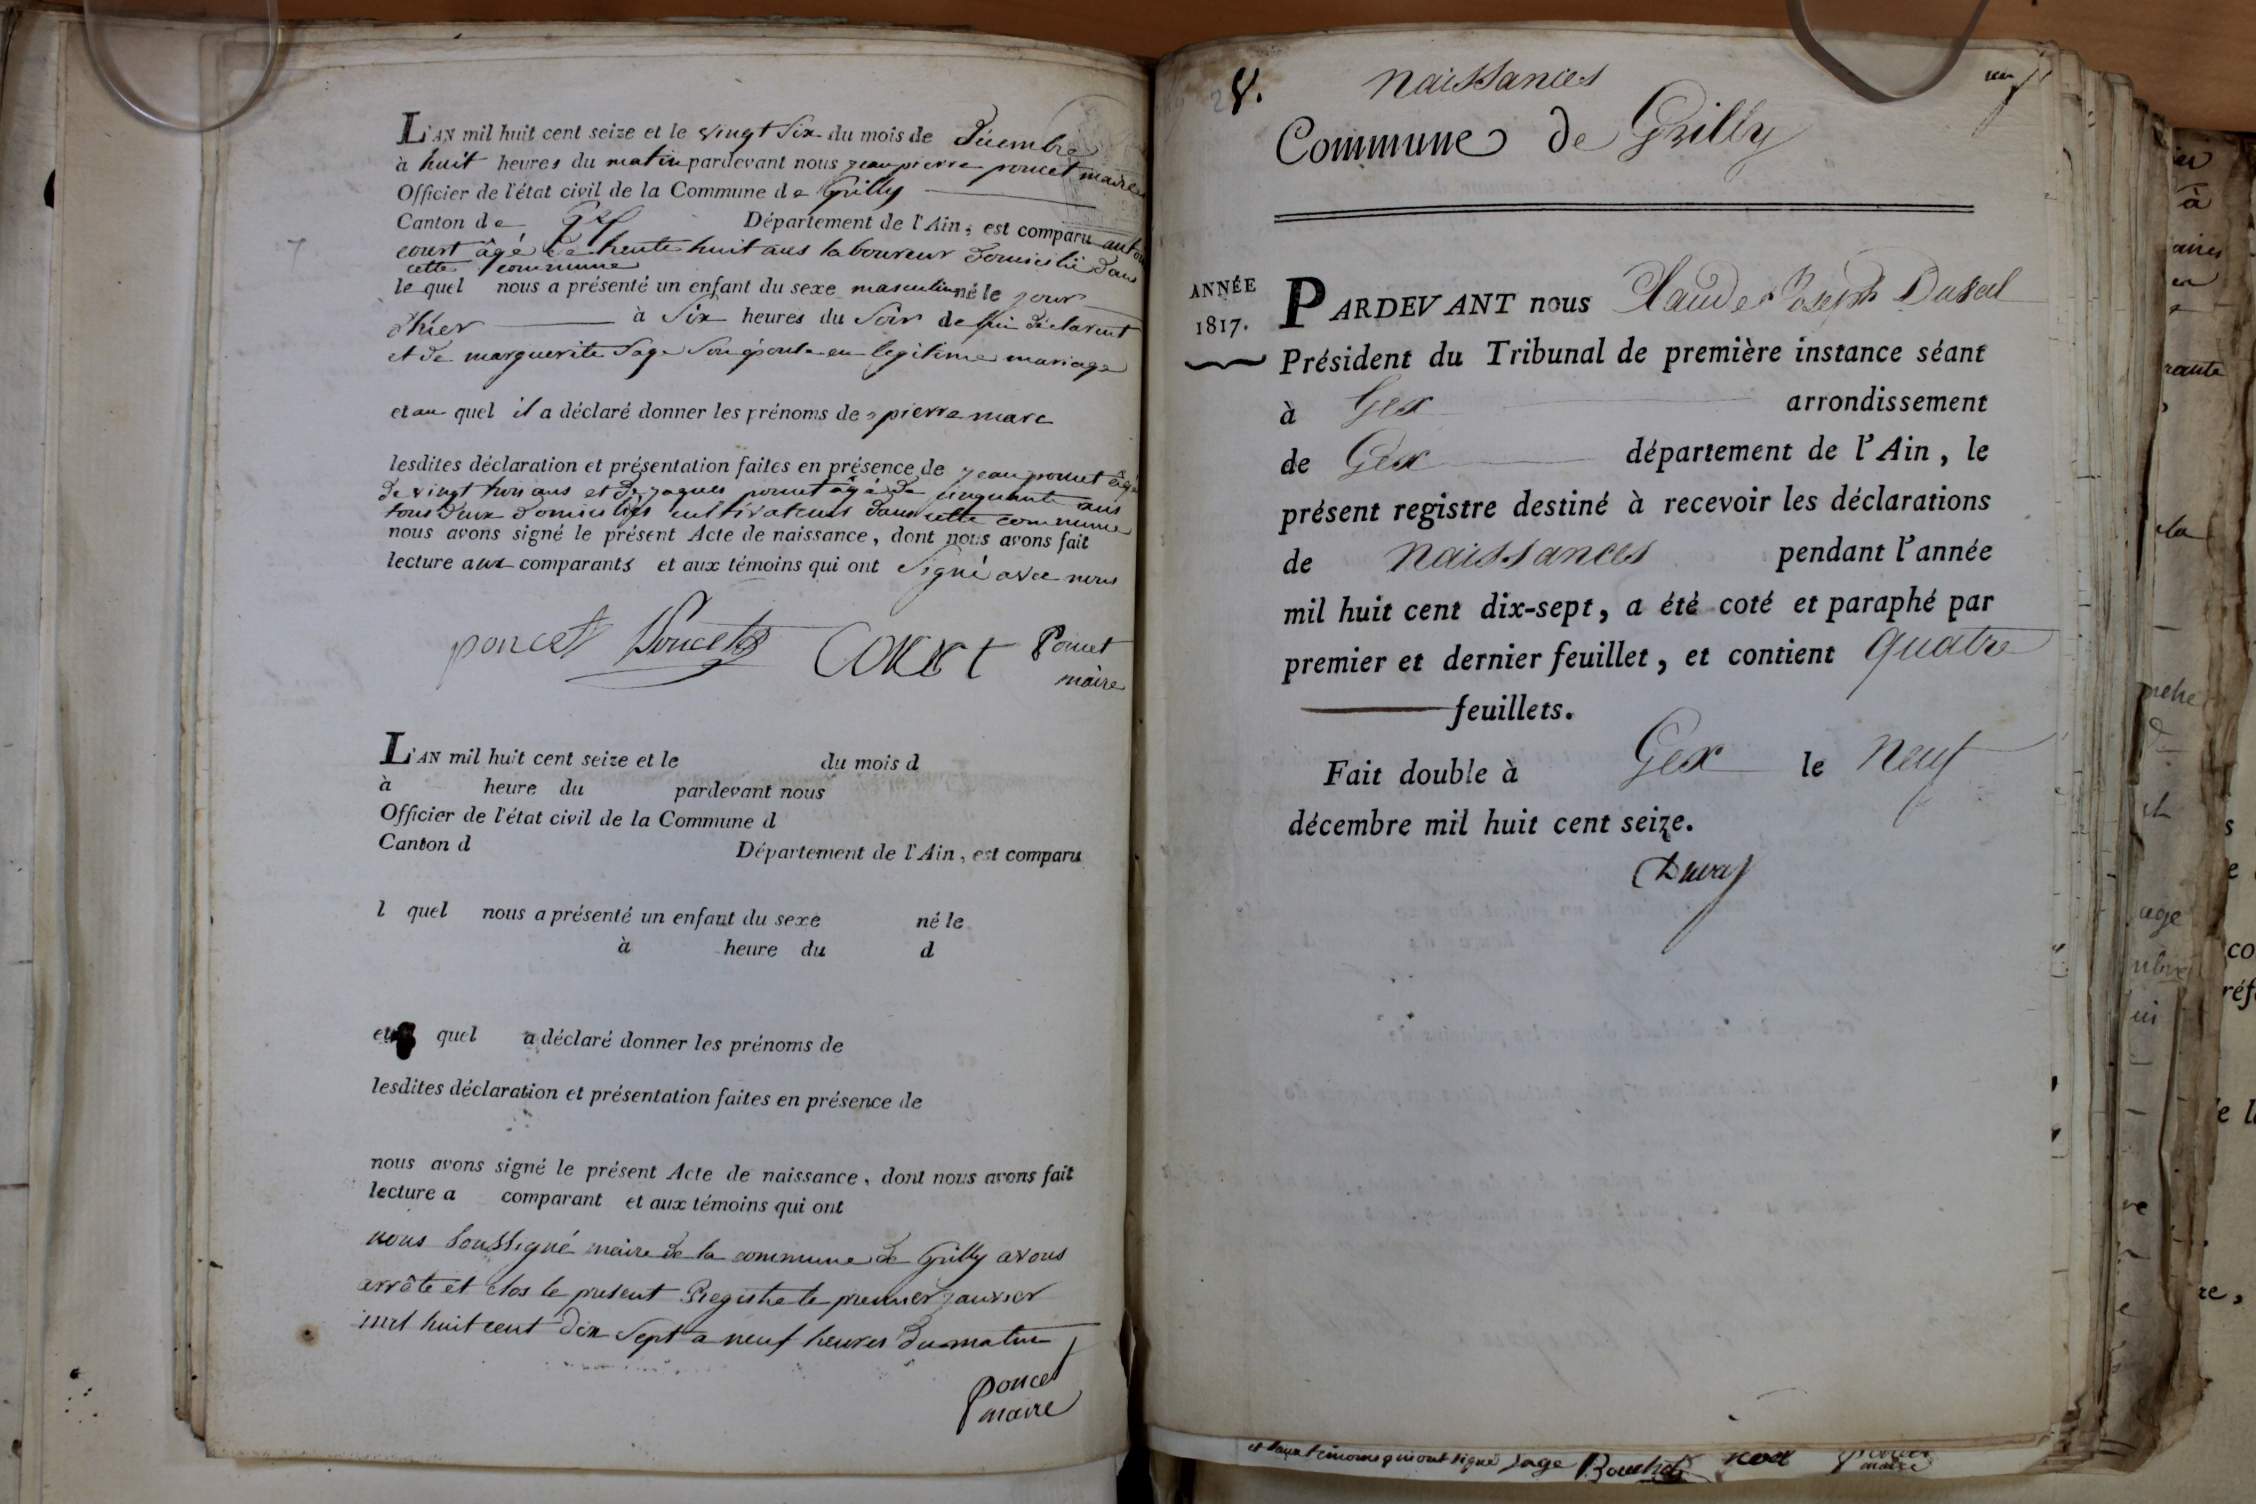 L'AN mil huit cent seize et le vingt six du mois de décembre
à huit heures du matin pardevant nous jean pierre poncet maire
Officier de l'état civil de la Commune de Grilly
Canton de Gex Département de l'Ain, est comparu
court âgé de trente huit ans laboureur domicilié dans
cette commune
lequel nous a présenté un enfant du sexe masculin né le jour
d'hier à six heures du soir de lui déclarent
et de marguerite Sage son épouse en legitime mariage
et au quel il a déclaré donner les prénoms de pierre marc
lesdites déclaration et présentation faites en présence de jean poncet âgé
de vingt trois ans et de jaques poncet âgé de cinquante ans
tous deux domiciliés cultivateurs dans cette commune
nous avons signé le présent Acte de naissance, dont nous avons fait
lecture aux comparants et aux témoins qui ont signé avec nous
poncet Poncet Court Poncet
maire
L'AN mil huit cent seize et le du mois d
à heure du pardevant nous
Officier de l'état civil de la Commune d
Canton d Département de l'Ain, est comparu
l quel nous a présenté un enfant du sexe né le
à heure du d
et quel a déclaré donner les prénoms de
lesdites déclaration et présentation faites en présence de
nous avons signé le présent Acte de naissance, dont nous avons fait
lecture a comparant et aux témoins qui ont
nous soussigné maire de la commune de Grilly avons
arrêté et clos le present Registre le premier janvier
mil huit cent dix sept a neuf heures du matin
Poncet
maire
8.
naissances
Commune de Grilly
ANNÉE
1817.
PARDEVANT nous Claude Joseph Duval
Président du Tribunal de première instance séant
à Gex arrondissement
de Gex département de l'Ain, le
présent registre destiné à recevoir les déclarations
de naissances pendant l'année
mil huit cent dix-sept, a été coté et paraphé par
premier et dernier feuillet, et contient quatre
feuillets.
Fait double à Gex le neuf
décembre mil huit cent seize.
Duval
et aux témoins qui ont signé Sage Bouchet
maire